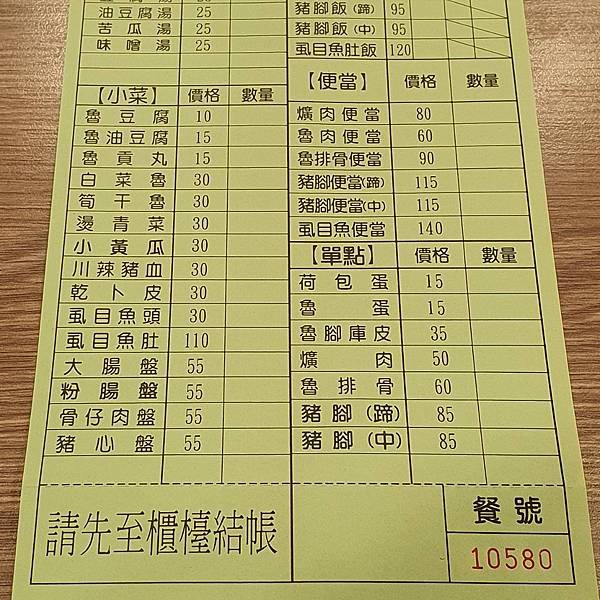 油豆腐湯 25
苦瓜湯 25
味噌湯 25
【小菜】 價格 數量
魯豆腐 10
魯油豆腐 15
魯貢丸 15
白菜魯 30
筍干魯 30
燙青菜 30
小黃瓜 30
川辣豬血 30
乾卜皮 30
虱目魚頭 30
虱目魚肚 110
大腸盤 55
粉腸盤 55
骨仔肉盤 55
豬心盤 55
豬腳飯(蹄) 95
豬腳飯(中) 95
虱目魚肚飯 120
【便當】 價格 數量
爌肉便當 80
魯肉便當 60
魯排骨便當 90
豬腳便當(蹄) 115
豬腳便當(中) 115
虱目魚便當 140
【單點】 價格 數量
荷包蛋 15
魯蛋 15
魯腳庫皮 35
爌肉 50
魯排骨 60
豬腳(蹄) 85
豬腳(中) 85
請先至櫃檯結帳
餐號
10580